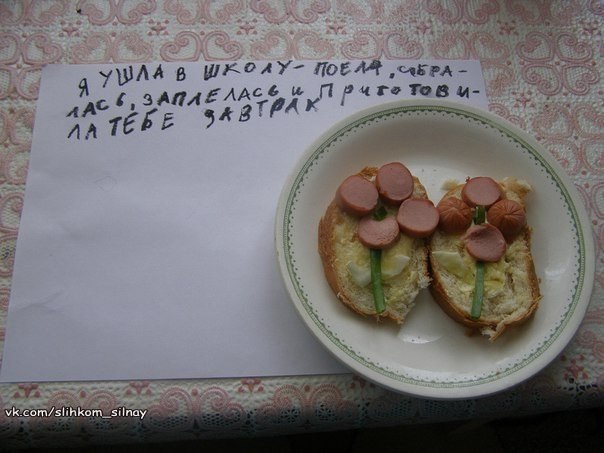 Я УШЛА В ШКОЛУ - ПОЕЛА, СОБРА-
ЛАСЬ, ЗАПЛЕЛАСЬ И ПРИГОТОВИ-
ЛА ТЕБЕ ЗАВТРАК
vk.com/slihkom_silnay